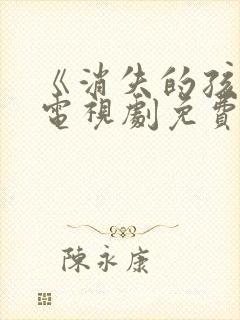 《消失的孩
電視劇免費
陳永康